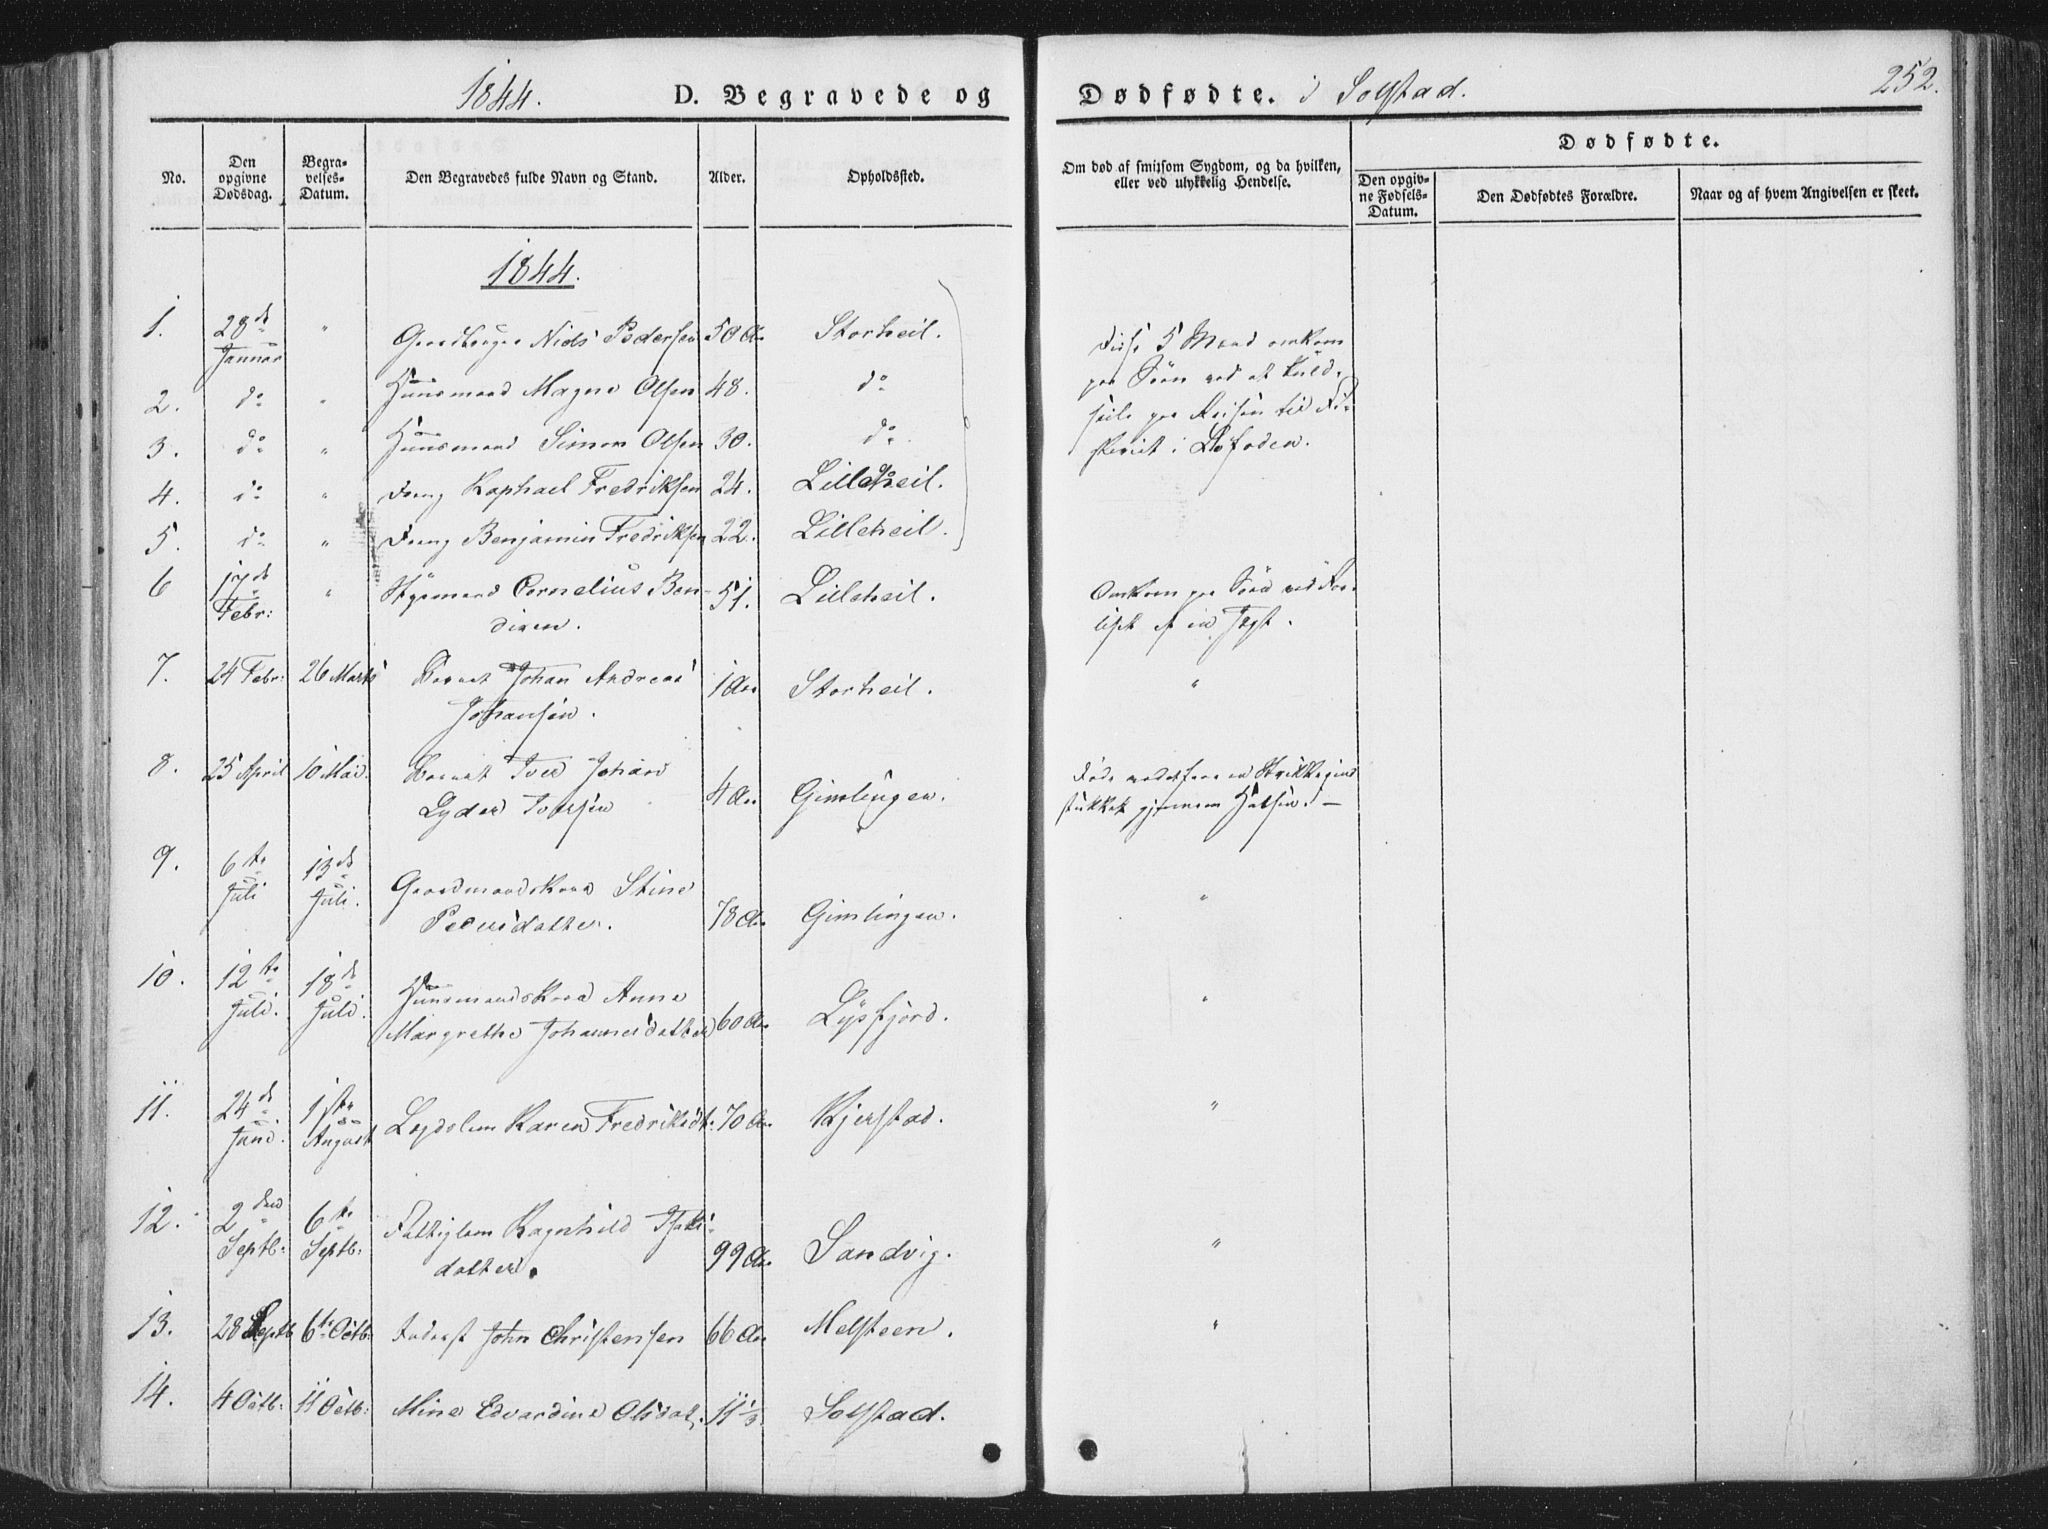 1844. D. Begravede og Dødfødte. i Solstad. 252.
No. Den opgivne Dødsdag. Begravelses-Datum. Den Begravedes fulde Navn og Stand. Alder. Opholdssted.
Om død af smitsom Sygdom, og da hvilken, eller ved ulykkelig Hendelse.
Dødfødte.
Den opgivne Fødsels-Datum. Den Dødfødtes Forældre. Naar og af hvem Angivelsen er skeet.
1844.
1. 28de Januar " Niels Pedersen 50 Aar Storheil.
Disse 5 Mænd omkom
paa Søen ved at kuld-
seile paa Reisen til Fi-
skeriet i Lofoden.
2. do " Huusmand Magnus Olsen 48. do
3. do " Huusmand Simon Olsen 30. do
4. do " Dreng Raphael Fredriksen 24. Lilleheil.
5. do " Dreng Benjamin Fredriksen 22. Lilleheil.
6 17de Febr: " Cornelius Ben-
dixen. 51. Lilleheil.
Omkom paa Søen ved For-
liset af en Jægt.
7. 24 Febr: 26 Marts Barnet Johan Andreas
Johansen. 1 Aar Storheil. "
8. 25 April 10 Mai. Barnet Iver Johan
Lyder Iversen 4 Aar Gimlingen.
stukket gjennem Halsen. —
9. 6te Juli 13de Juli. Gaardmandskone Stine
Pedersdatter. 78 Aar Gimlingen. "
10. 12te Juli. 18de Juli. Huusmandskone Anne
Margrethe Johannesdatter 60 Aar Lysfjord. "
11. 24de Juni. 1ste August Lægdslem Karen Fredriksdt: 70 Aar Kjerstad. "
12. 2den Septb: 6te Septb: Fattiglem Ragnhild
datter. 99 Aar Sandvig. "
13. 28 Septb 6te Octb: Føderaads John Christensen 66 Aar Melsteen. "
14. 4 Octb: 11 Octb: Mine Edvardine Olsdat. 11 Solstad.